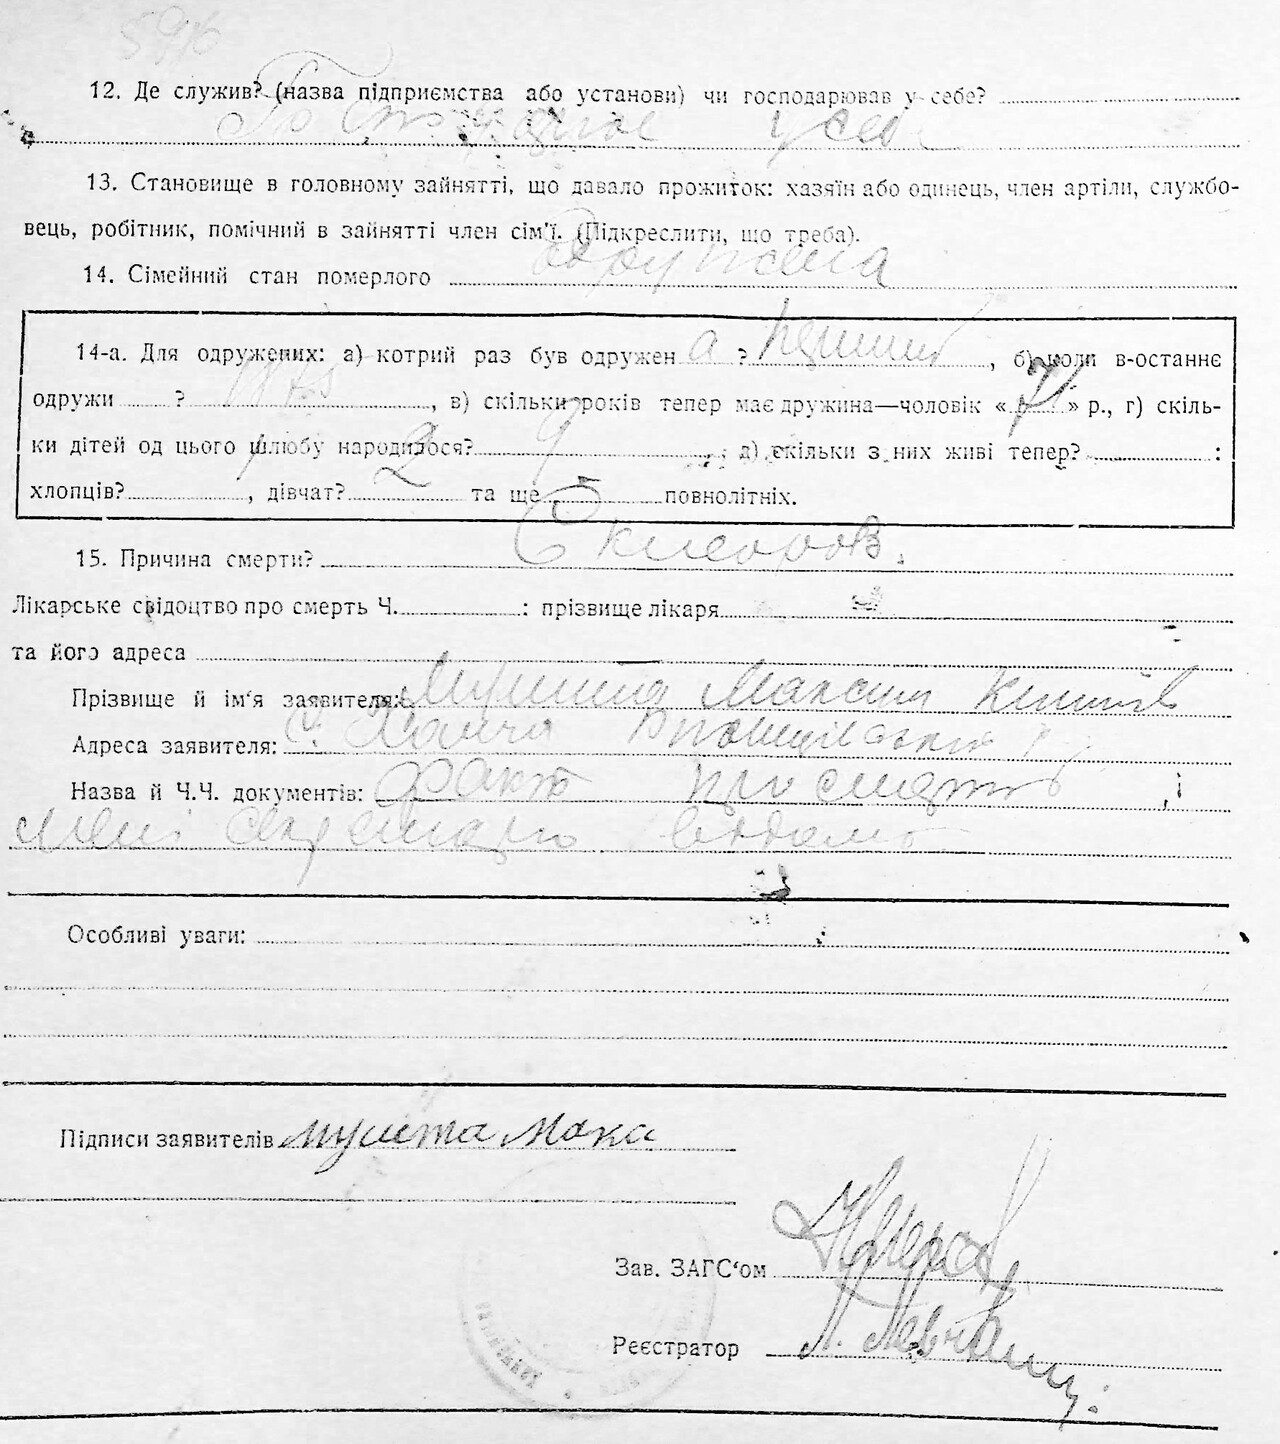 12. Де служив? (назва підприємства або установи) чи господарював у себе?
у себе
13. Становище в головному зайнятті, що давало прожиток: хазяїн або одинець, член артіли, службо-
вець, робітник, помічний в зайнятті член сім'ї. (Підкреслити, що треба).
14. Сімейний стан померлого одружена
14-а. Для одружених: а) котрий раз був одружен а ? , б) коли в-останнє
одружи ? , в) скільки років тепер має дружина—чоловік « 71 » р., г) скіль-
ки дітей од цього шлюбу народилося? 9 ; д) скільки з них живі тепер? :
хлопців? , дівчат? 2 та ще 5 повнолітніх.
15. Причина смерти?
Лікарське свідоцтво про смерть Ч. : прізвище лікаря
та його адреса
Прізвище й ім'я заявителя: Максим
Адреса заявителя: с.
Назва й Ч.Ч. документів: Факт про смерть
мені секретарю відомо
Особливі уваги:
Підписи заявителів Мака
Зав. ЗАГС'ом
Реєстратор